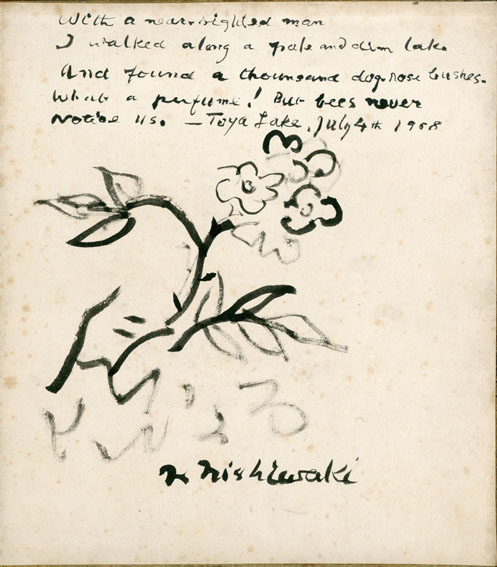 With a near-sighted man
I walked along a pale and dim lake
And found a thounsand dog-rose bushes.
What a perfume! But bees never
Notice us. — Toya Lake, July 4th 1958
N Nishiwaki